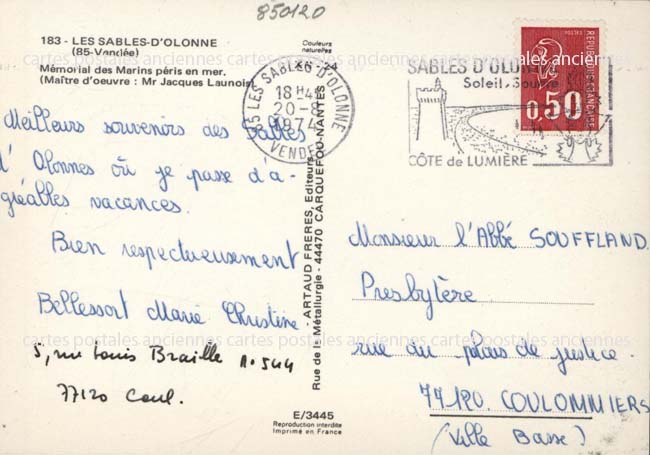 850120
183 - LES SABLES-D'OLONNE
(85-Vendée)
Mémorial des Marins péris en mer.
(Maître d'oeuvre : Mr Jacques Launois)
Couleurs
naturelles
85 LES SABLES D'OLONNE
18 H
20-8
1974
VENDEE
SABLES D'OLONNE
Soleil
CÔTE de LUMIÈRE
REPUBLIQUE FRANÇAISE
0,50
Meilleurs souvenirs des Sables
d'Olonnes où je passe d'a-
gréables vacances.
Bien respectueusement
Bellessort Marie Christine
5, rue Louis Braille A. 544
77120 Coul.
ARTAUD FRERES, Editeurs
Rue de la Métallurgie - 44470 CARQUEFOU-NANTES
Monsieur l'Abbé SOUFFLAND
Presbytère
rue du palais de justice.
77120 COULOMMIERS
(Ville Basse)
E/3445
Reproduction interdite
Imprimé en France
cartes postales anciennes cartes postales anciennes cartes postales anciennes
cartes postales anciennes cartes postales anciennes cartes postales anciennes